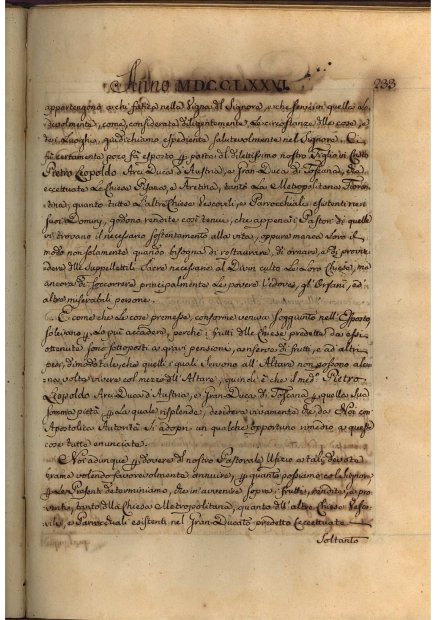 Anno MDCCLXXVI. 233
appartengono a chi fatica nella Vigna del Signore, e che serve in quella lo=
devolmente, come, considerata diligentemente le circostanze delle cose, e
dei Luoghi, giudichiamo espediente salutevolmente nel Signore. Ci
fù certamente poco fà esposto per parte del dilettissimo nostro Figlio in Cristo
Pietro Leopoldo Arciduca d'Austria, e Gran Duca di Toscana, che
eccettuate le Chiese Pisana, e Aretina, tanto la Metropolitana Fioren
tina, quanto tutte l'altre Chiese Vescovili, e Parrocchiali esistenti nei
suoi Dominj, godono rendite così tenui, che appena i Pastori di quelle
vi trovano il necessario sostentamento alla vita, oppure manca loro il
modo non solamente quando bisogna di restaurare, di ornare, e di provve
dere delle Suppellettili Sacre necessarie al Divin culto le loro Chiese, ma
ancora di soccorrere principalmente le povere Vedove, gli Orfani, ed
altre miserabili persone.
E come che le cose premesse, conforme veniva soggiunto nell'Esposto,
solevano, la più accadere, perchè i frutti delle Chiese predette da essi
ottenute sono sottoposti a gravi pensioni, a riserve di frutti, e ad altri
pesi, di modo tale, che quelli i quali servono all'Altare non possono alcu
na volta vivere col mezzo dell'Altare, quindi è che il med.° Pietro
Leopoldo Arciduca d'Austria, e Gran Duca di Toscana per quella sua
somma pietà per la quale risplende, desidera vivamente che da Noi con
Apostolica Autorità si adopri un qualche opportuno rimedio a queste
cose tutte enunciate.
Noi adunque per dovere del nostro Pastorale Ufizio a tali, devote
brame volendo favorevolmente annuire, per quanto possiamo col Signore
per le Presenti determiniamo, che in avvenire sopra i frutti, rendite, e pro
venti, tanto della Chiesa Metropolitana, quanto dell'altre Chiese Vesco
vili, e Parrocchiali esistenti nel Gran-Ducato predetto (eccettuate
soltanto